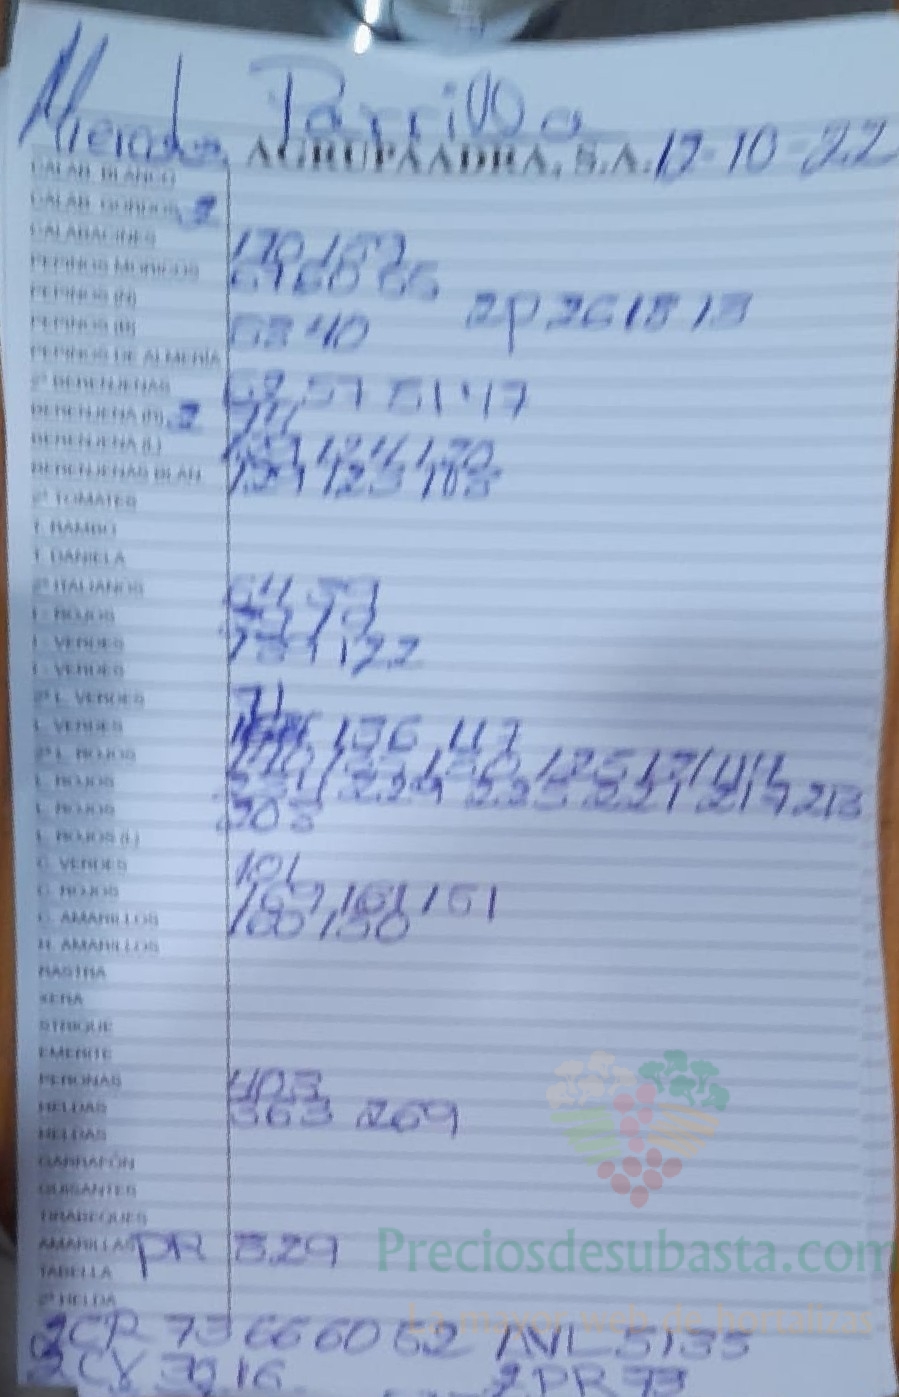 Mierdas Parrilla
AGRUPAADRA, S.A. 12-10-22
CALAB. BLANCO
CALAB. GORDOS 2
CALABACINES 170 159
PEPINOS MORICOS 60 65
PEPINOS (N) 2P 26 18 13
PEPINOS (B) 53 40
PEPINOS DE ALMERÍA
2ª BERENJENAS 57 51 47
BERENJENA (R) 2
BERENJENA (L) 124 120
BERENJENAS BLAN 123
2ª TOMATES
T. RAMBO
T. DANIELA
2ª ITALIANOS 64 59
I. ROJOS
I. VERDES 122
I. VERDES
2ª L. VERDES 71
L. VERDES 136 117
2ª L. ROJOS
L. ROJOS 229 225 221 217 213
L. ROJOS 203
L. ROJOS (L)
C. VERDES 101
C. ROJOS 161 151
C. AMARILLOS 160 150
H. AMARILLOS
RASTRA
XERA
STRIQUE
EMERITE
PERONAS 403
HELDAS 363 269
HELDAS
GARRAFÓN
GUISANTES
TIRABEQUES
AMARILLAS PR 329
TABELLA
2ª HELDA
2CR 73 66 60 52 AVL 51 35
2CV 39 16 2PR 73
Preciosdesubasta.com
La mayor web de hortalizas